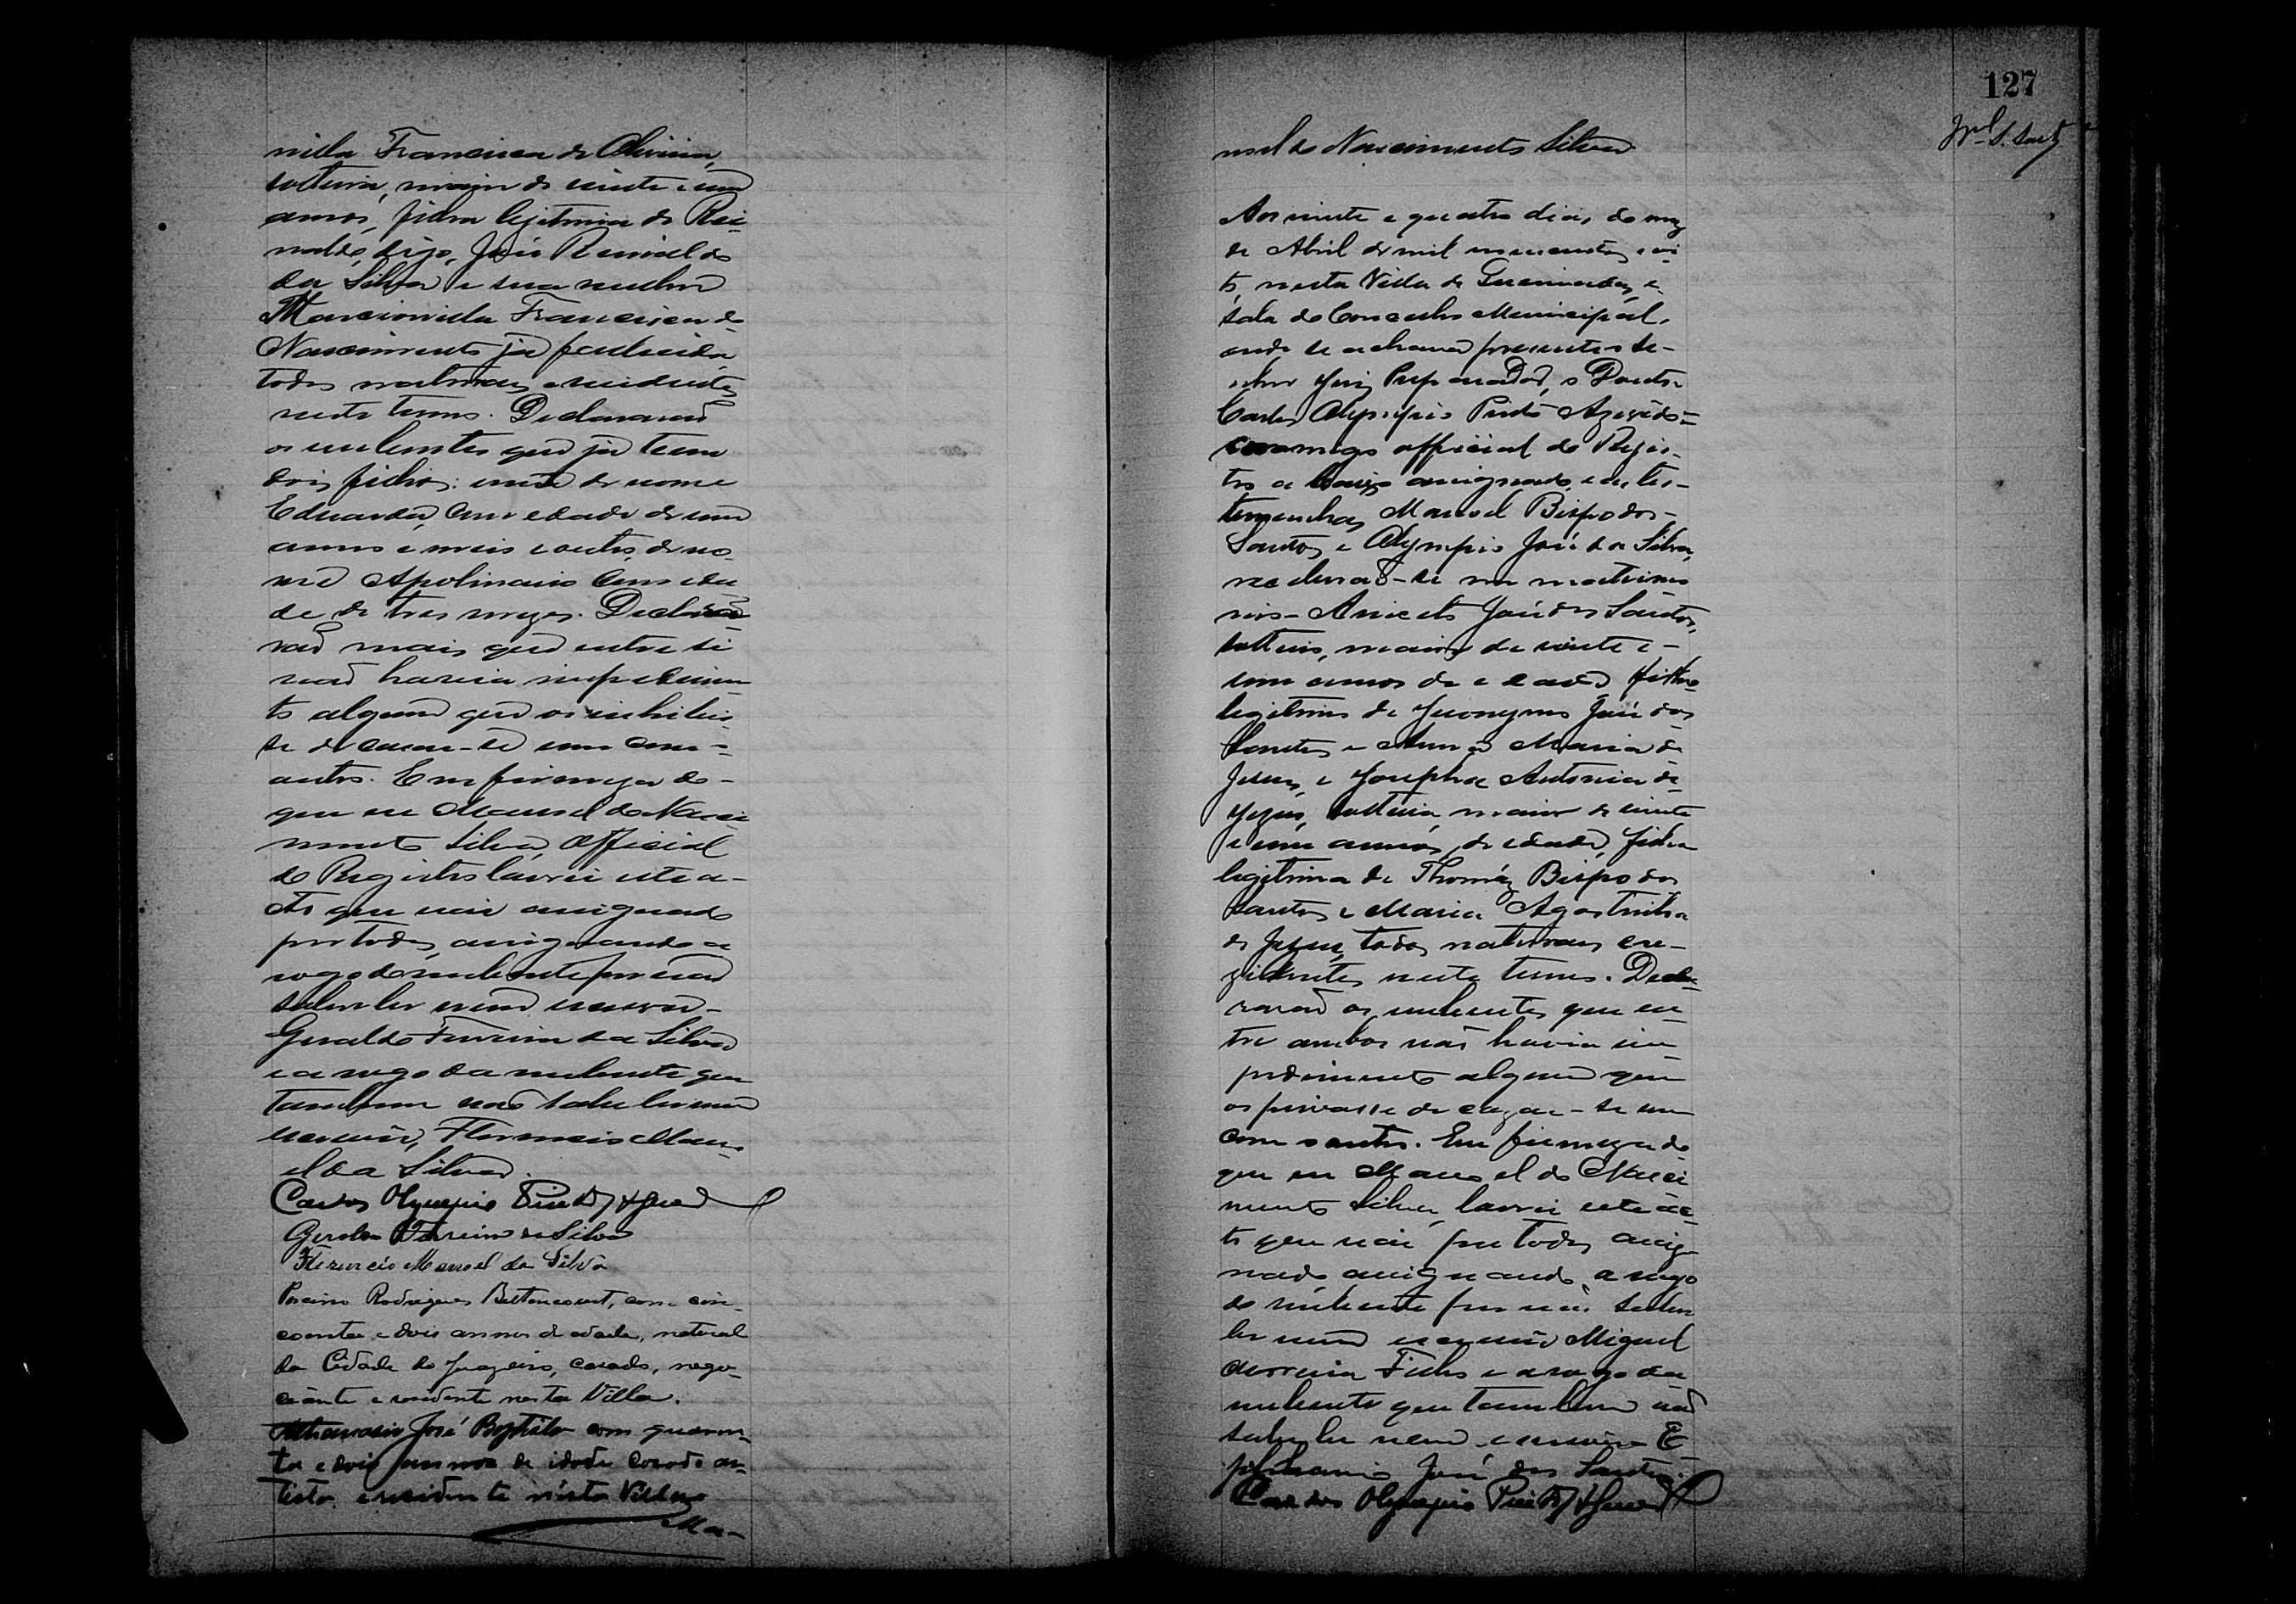 nilla Francisca de Oliveira,
solteira, maior de vinte e um
annos, filha legitima de Rei-
naldo, digo, José Reinaldo
da Silva e sua mulher
Marcionilla Francisca do
Nascimento já fallecida
todos naturaes e residentes
neste termo. Declararaõ
os nubentes que já tem
dois filhos: um de nome
Eduardo, com edade de um
anno e meio e outro, de no-
me Apolinario com eda-
de de tres mezes. Declara-
raõ mais que entre si
naõ havia impedimen-
to algum que os inhibis-
se de casar-se um com o
outro. Em firmeza do
que eu Manoel do Nasci-
mento Silva, Official
do Registro lavrei este a-
cto que vai assignado
por todos, assignando a
rogo do nubente por naõ
saber ler nem escrever
Geraldo Ferreira da Silva
e a rogo da nubente que
tambem naõ sabe ler nem
escrever, Florencio Mano-
el da Silva.
Carlos Olympio Pinto d'Azevedo
Geraldo Ferreira da Silva
Florencio Manoel da Silva
Rodrigues Bettencourt, com cin-
coenta e dois annos de edade, natural
da Cidade do Juazeiro, casado, nego-
ciante e residente nesta Villa.
Athanasio José Baptista com quaren-
ta e dois annos de idade casado ar-
tista e residente nésta Villa
Ma-
127
noel do Nascimento Silva
Aos vinte e quatro dias do mez
de Abril de mil novecentos e oi-
to nesta Villa de Queimadas, e
sala do Concelho Municipal,
onde se achavaõ presentes o se-
nhor Juiz Preparador, o Doutor
Carlos Olympio Pinto Azevedo
commigo official do Regis-
tro a baixo assignado, e as tes-
temunhas, Manoel Bispo dos
Santos e Olympio José da Silva,
receberaõ-se em matrimo-
nio Aniceto José dos Santos,
solteiro, maior de vinte e
um annos de edade filho
legitimo de Jeronymo José dos
Santos e Anna Maria de
Jesus, e Josepha Antonia de
Jezus, solteira maior de vinte
e um annos, de edade, filha
legitima de Thomáz Bispo dos
Santos e Maria Agostinha
de Jezus, todos naturaes e re-
zidentes neste termo. Decla-
raraõ os nubentes que en-
tre ambos não havia im-
pedimento algum que
os privasse de cazar-se um
com o outro. Em firmeza do
que eu Manoel do Nasci-
mento Silva, lavrei este ac-
to que vai por todos assig-
nado assignando a rogo
do nubente por não saber
ler nem escrever Miguel
Correria Filho e a rogo da
nubente que tambem naõ
sabe ler nem escrever E-
piphanio José dos Santos.
Carlos Olympio Pinto d'Azevedo